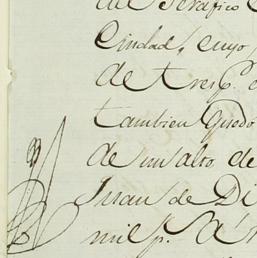 del Serafico
Ciudad, cuyo
de tresp.
tambien Quedo
de un alto de
Juan de Di
mil p.s